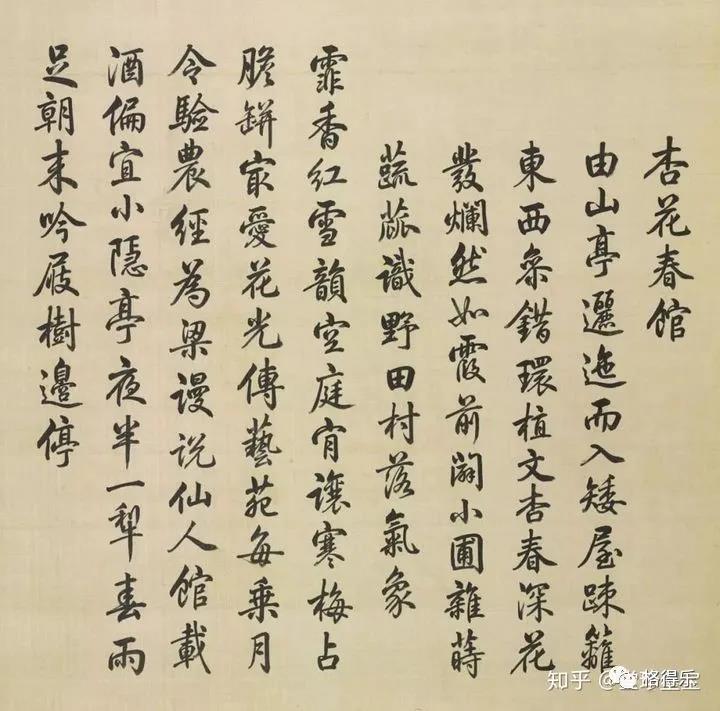 杏花春館
由山亭邐迤而入矮屋疎籬
東西叅錯環植文杏春深花
發爛然如霞前闢小圃雜蒔
蔬蓏識野田村落氣象
霏香紅雪韻空庭肯讓寒梅占
膽缾最愛花光傳藝苑每乗月
令驗農經為梁謾説仙人館載
酒偏宜小隱亭夜半一犁春雨
足朝来吟屐樹邊停
知乎 @
珞得乐